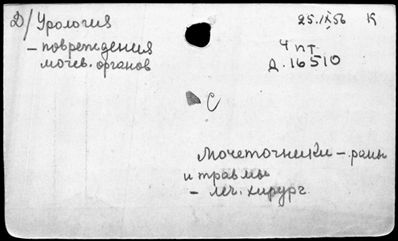 Д/ Урология 25.IX 56 К
- повреждения 4 пт
мочев. органов Д. 16510
С
Мочеточники - раны
и травмы
- леч. хирург.